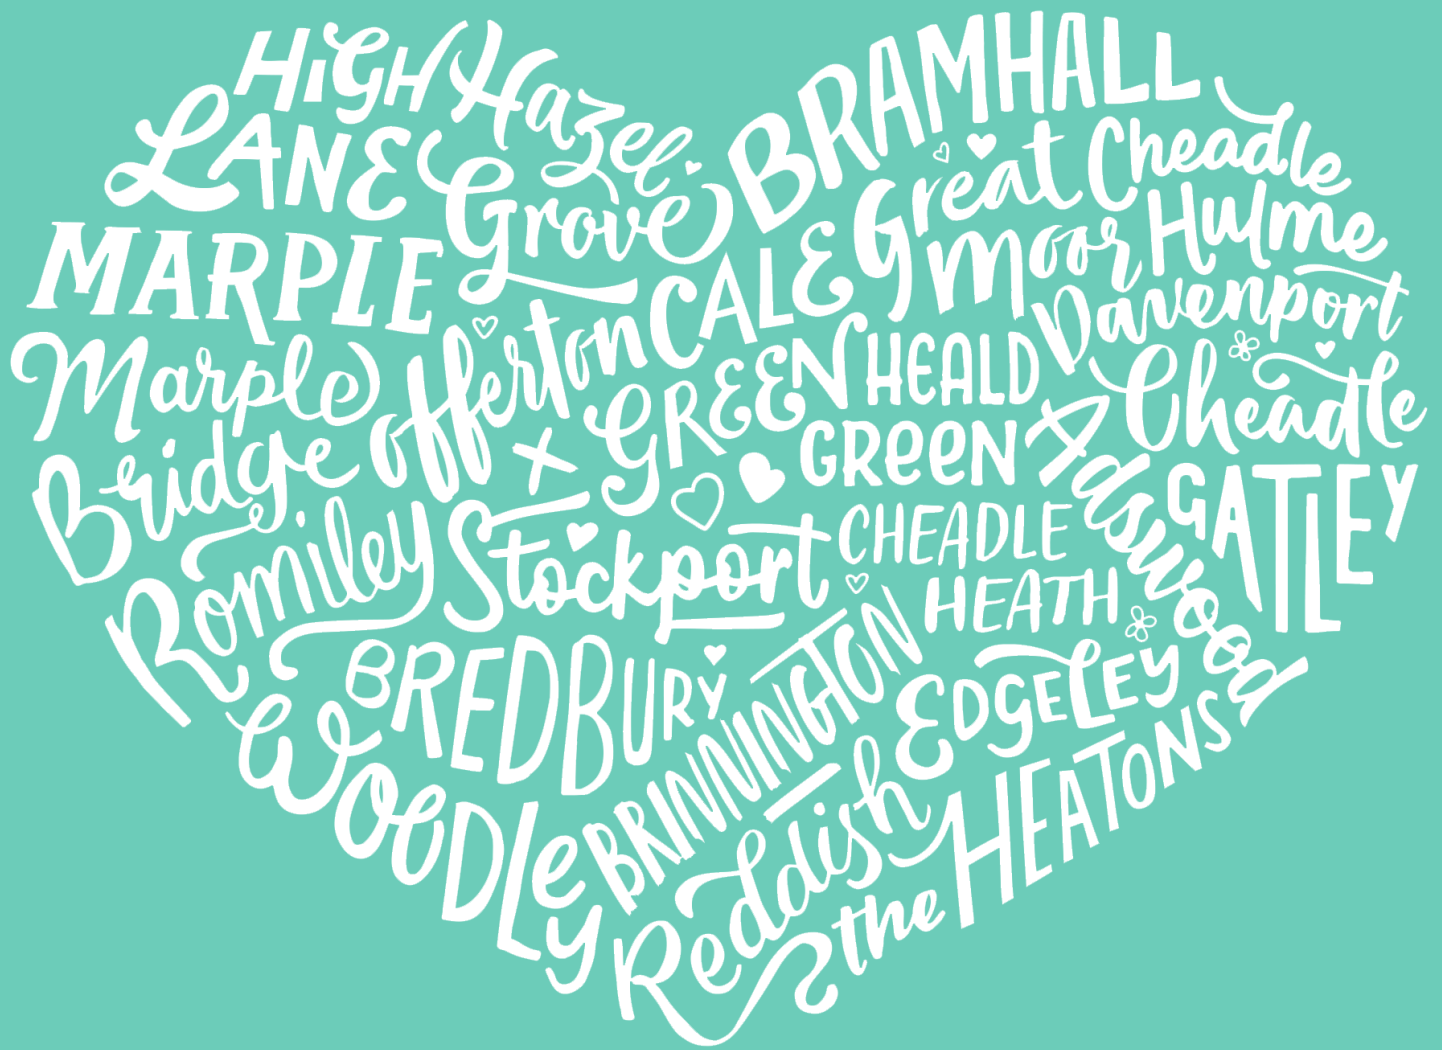 HiGH
LANE
Hazel
Grove
BRAMHALL
Great
Moor
Cheadle
Hulme
MARPLE
CALE
GREEN
Davenport
Marple
Bridge
Offerton
HEALD
GREEN
Cheadle
Adswood
GATLEY
Romiley
Stockport
CHEADLE
HEATH
BREDBURY
BRINNINGTON
EDGELEY
WOODLEY
Reddish
the HEATONS